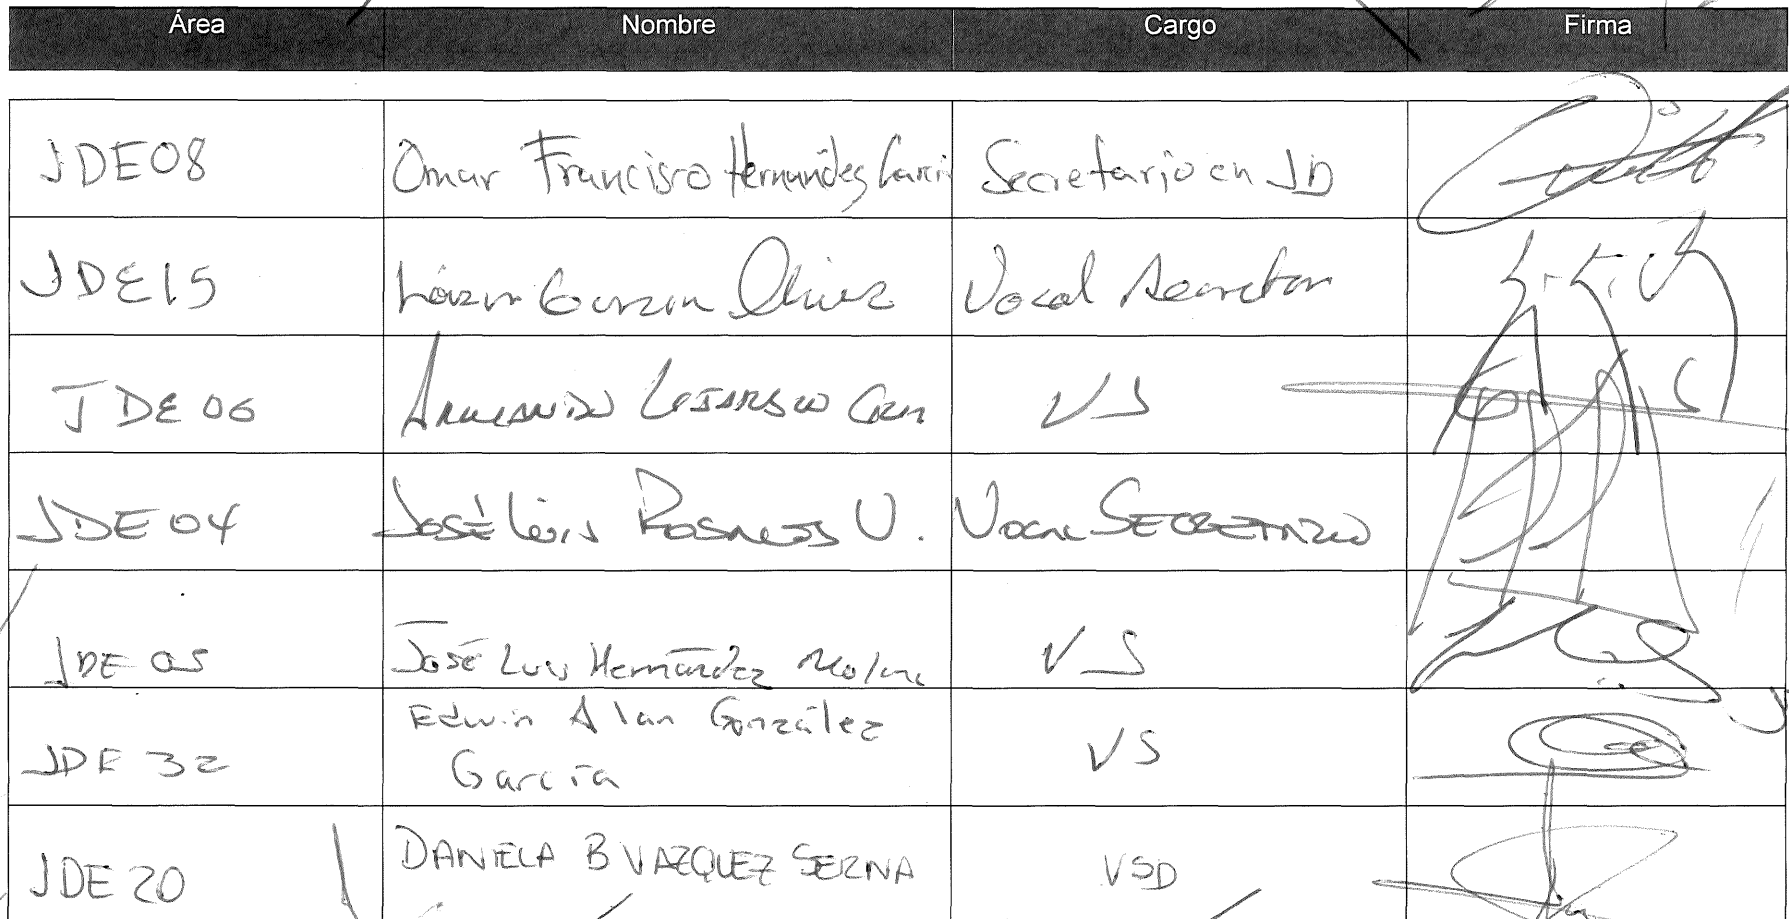 Área Nombre Cargo Firma
JDE08 Omar Francisco Hernández Garcí Secretario en JD
JDE15 Vocal Secretar
JDE 06 Armando VS
JDE 04 José Luis Rosales V. Vocal SECRETARIO
JDE 05 José Luis Hernández Molina VS
JDE 32 Edwin Alan González
García VS
JDE 20 DANIELA B VAZQUEZ SERNA VSD